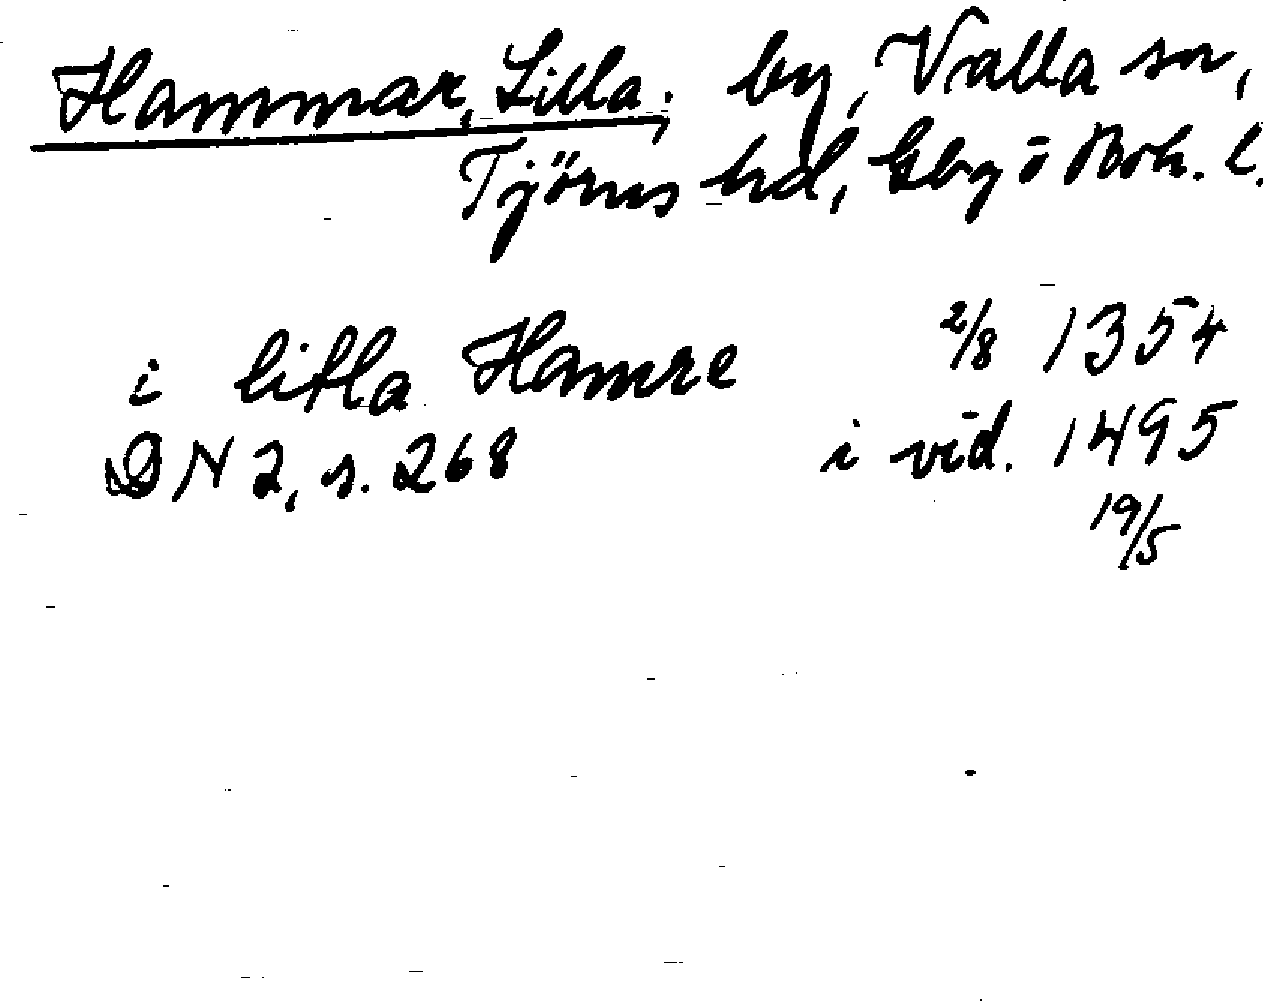 Hammar, Lilla; by, Valla sn,
Tjörns hd, Gbg o Boh. l.
i litla Hamre 2/8 1354
DN 2, s. 268 i vid. 1495
19/5